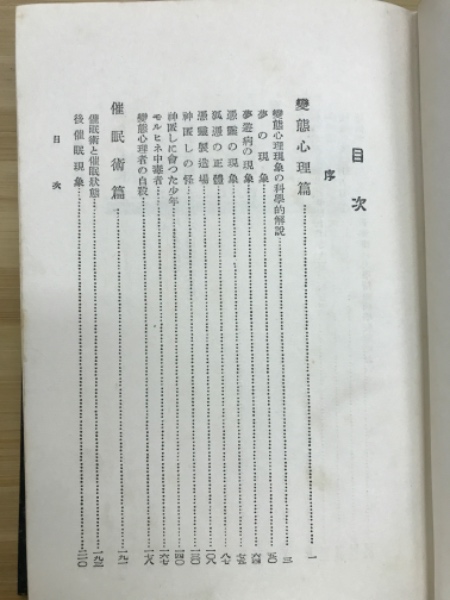 目次
序
變態心理篇……一
變態心理現象の科學的解說……三
夢の現象……五〇
夢遊病の現象……六四
憑靈の現象……七三
狐憑の正體……八七
憑靈製造場……一〇八
神匿しの怪……一三〇
神匿しに會つた少年……一四〇
モルヒネ中毒者……一六七
變態心理者の自殺……一七八
催眠術篇……一九一
催眠術と催眠狀態……一九三
後催眠現象……二一〇
目次